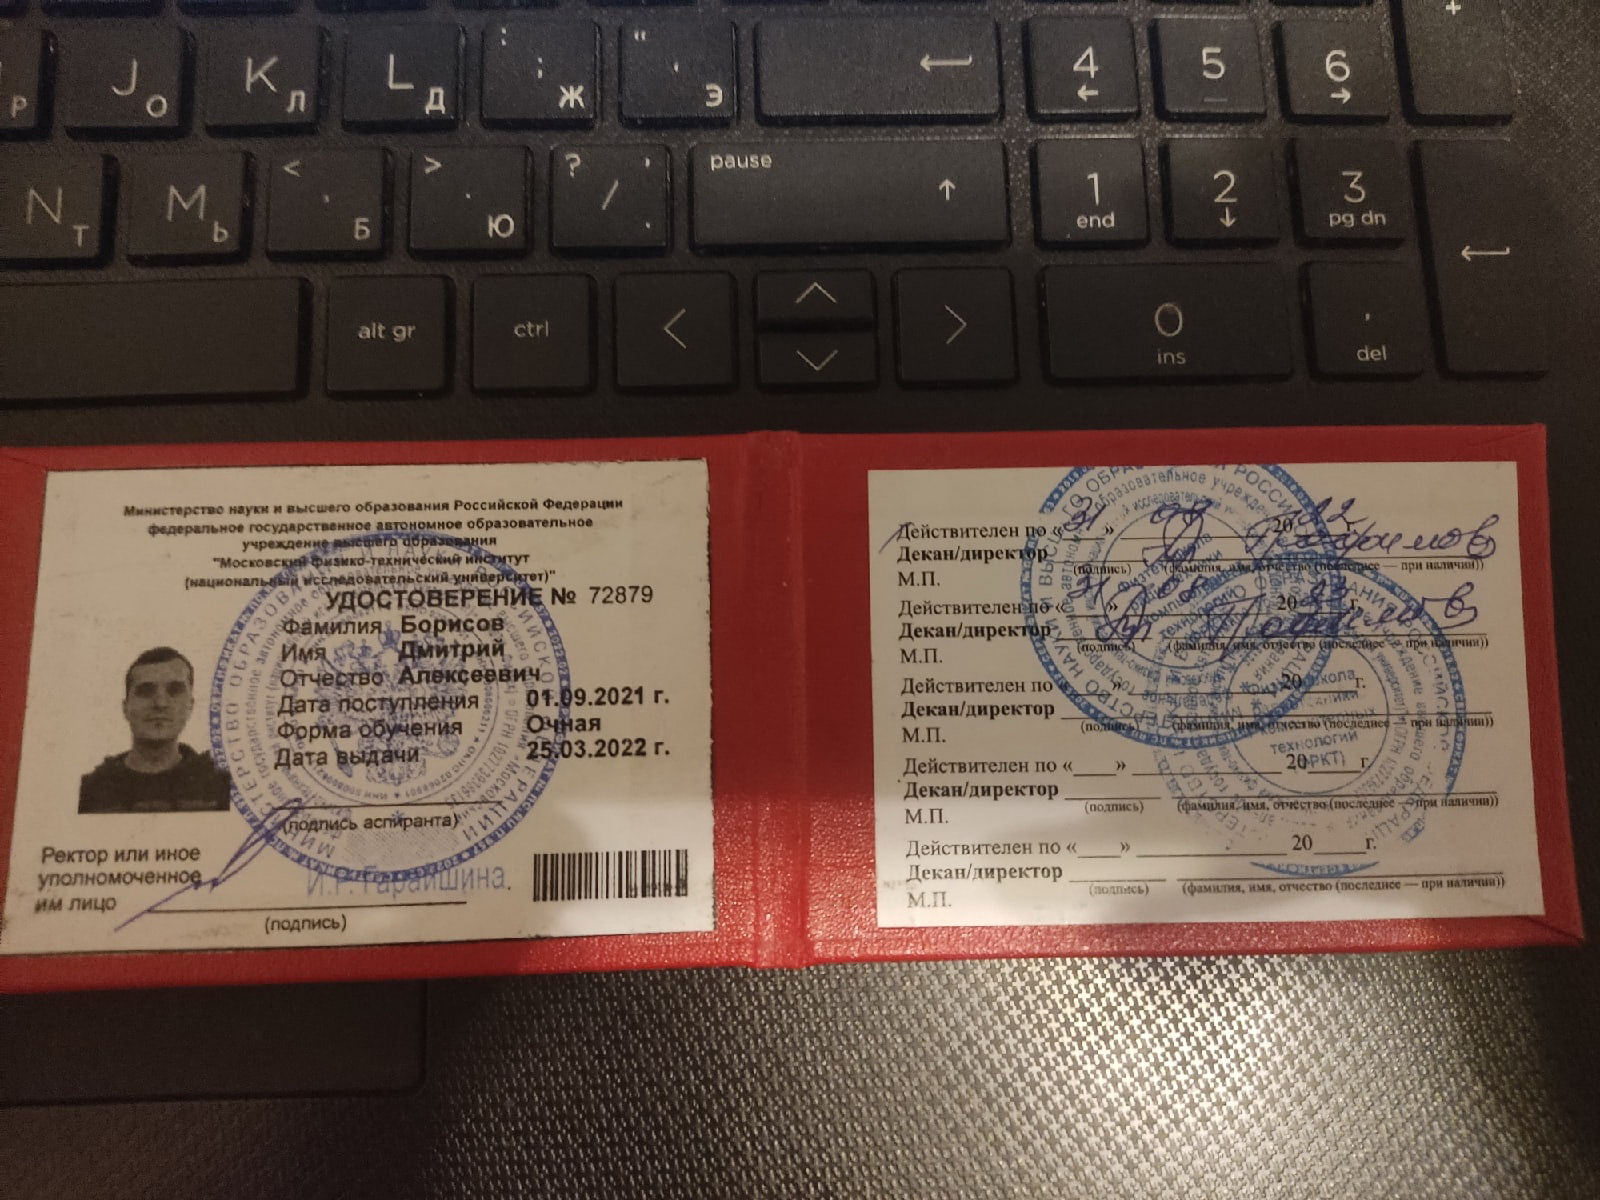 +
J О
K Л
L Д
: ; Ж
" ' Э
4
5
6
Р
N Т
M Ь
< , Б
> . Ю
? / , .
pause
1 end
2
3 pg dn
alt gr
ctrl
0 ins
, del
Министерство науки и высшего образования Российской Федерации
федеральное государственное автономное образовательное
учреждение высшего образования
"Московский физико-технический институт
(национальный исследовательский университет)"
УДОСТОВЕРЕНИЕ № 72879
Фамилия Борисов
Имя Дмитрий
Отчество Алексеевич
Дата поступления 01.09.2021 г.
Форма обучения Очная
Дата выдачи 25.03.2022 г.
(подпись аспиранта)
Ректор или иное
уполномоченное
им лицо
И.Г. Гарайшина.
(подпись)
Действителен по «31» 08 2022 г.
Декан/директор
(подпись) (фамилия, имя, отчество (последнее — при наличии))
М.П.
Действителен по «31» 08 2023 г.
Декан/директор
(подпись) (фамилия, имя, отчество (последнее — при наличии))
М.П.
Действителен по « 20 г.
Декан/директор
(подпись) (фамилия, имя, отчество (последнее — при наличии))
М.П.
Действителен по «___» 20___г.
Декан/директор
(подпись) (фамилия, имя, отчество (последнее — при наличии))
М.П.
Действителен по «___» 20___г.
Декан/директор
(подпись) (фамилия, имя, отчество (последнее — при наличии))
М.П.